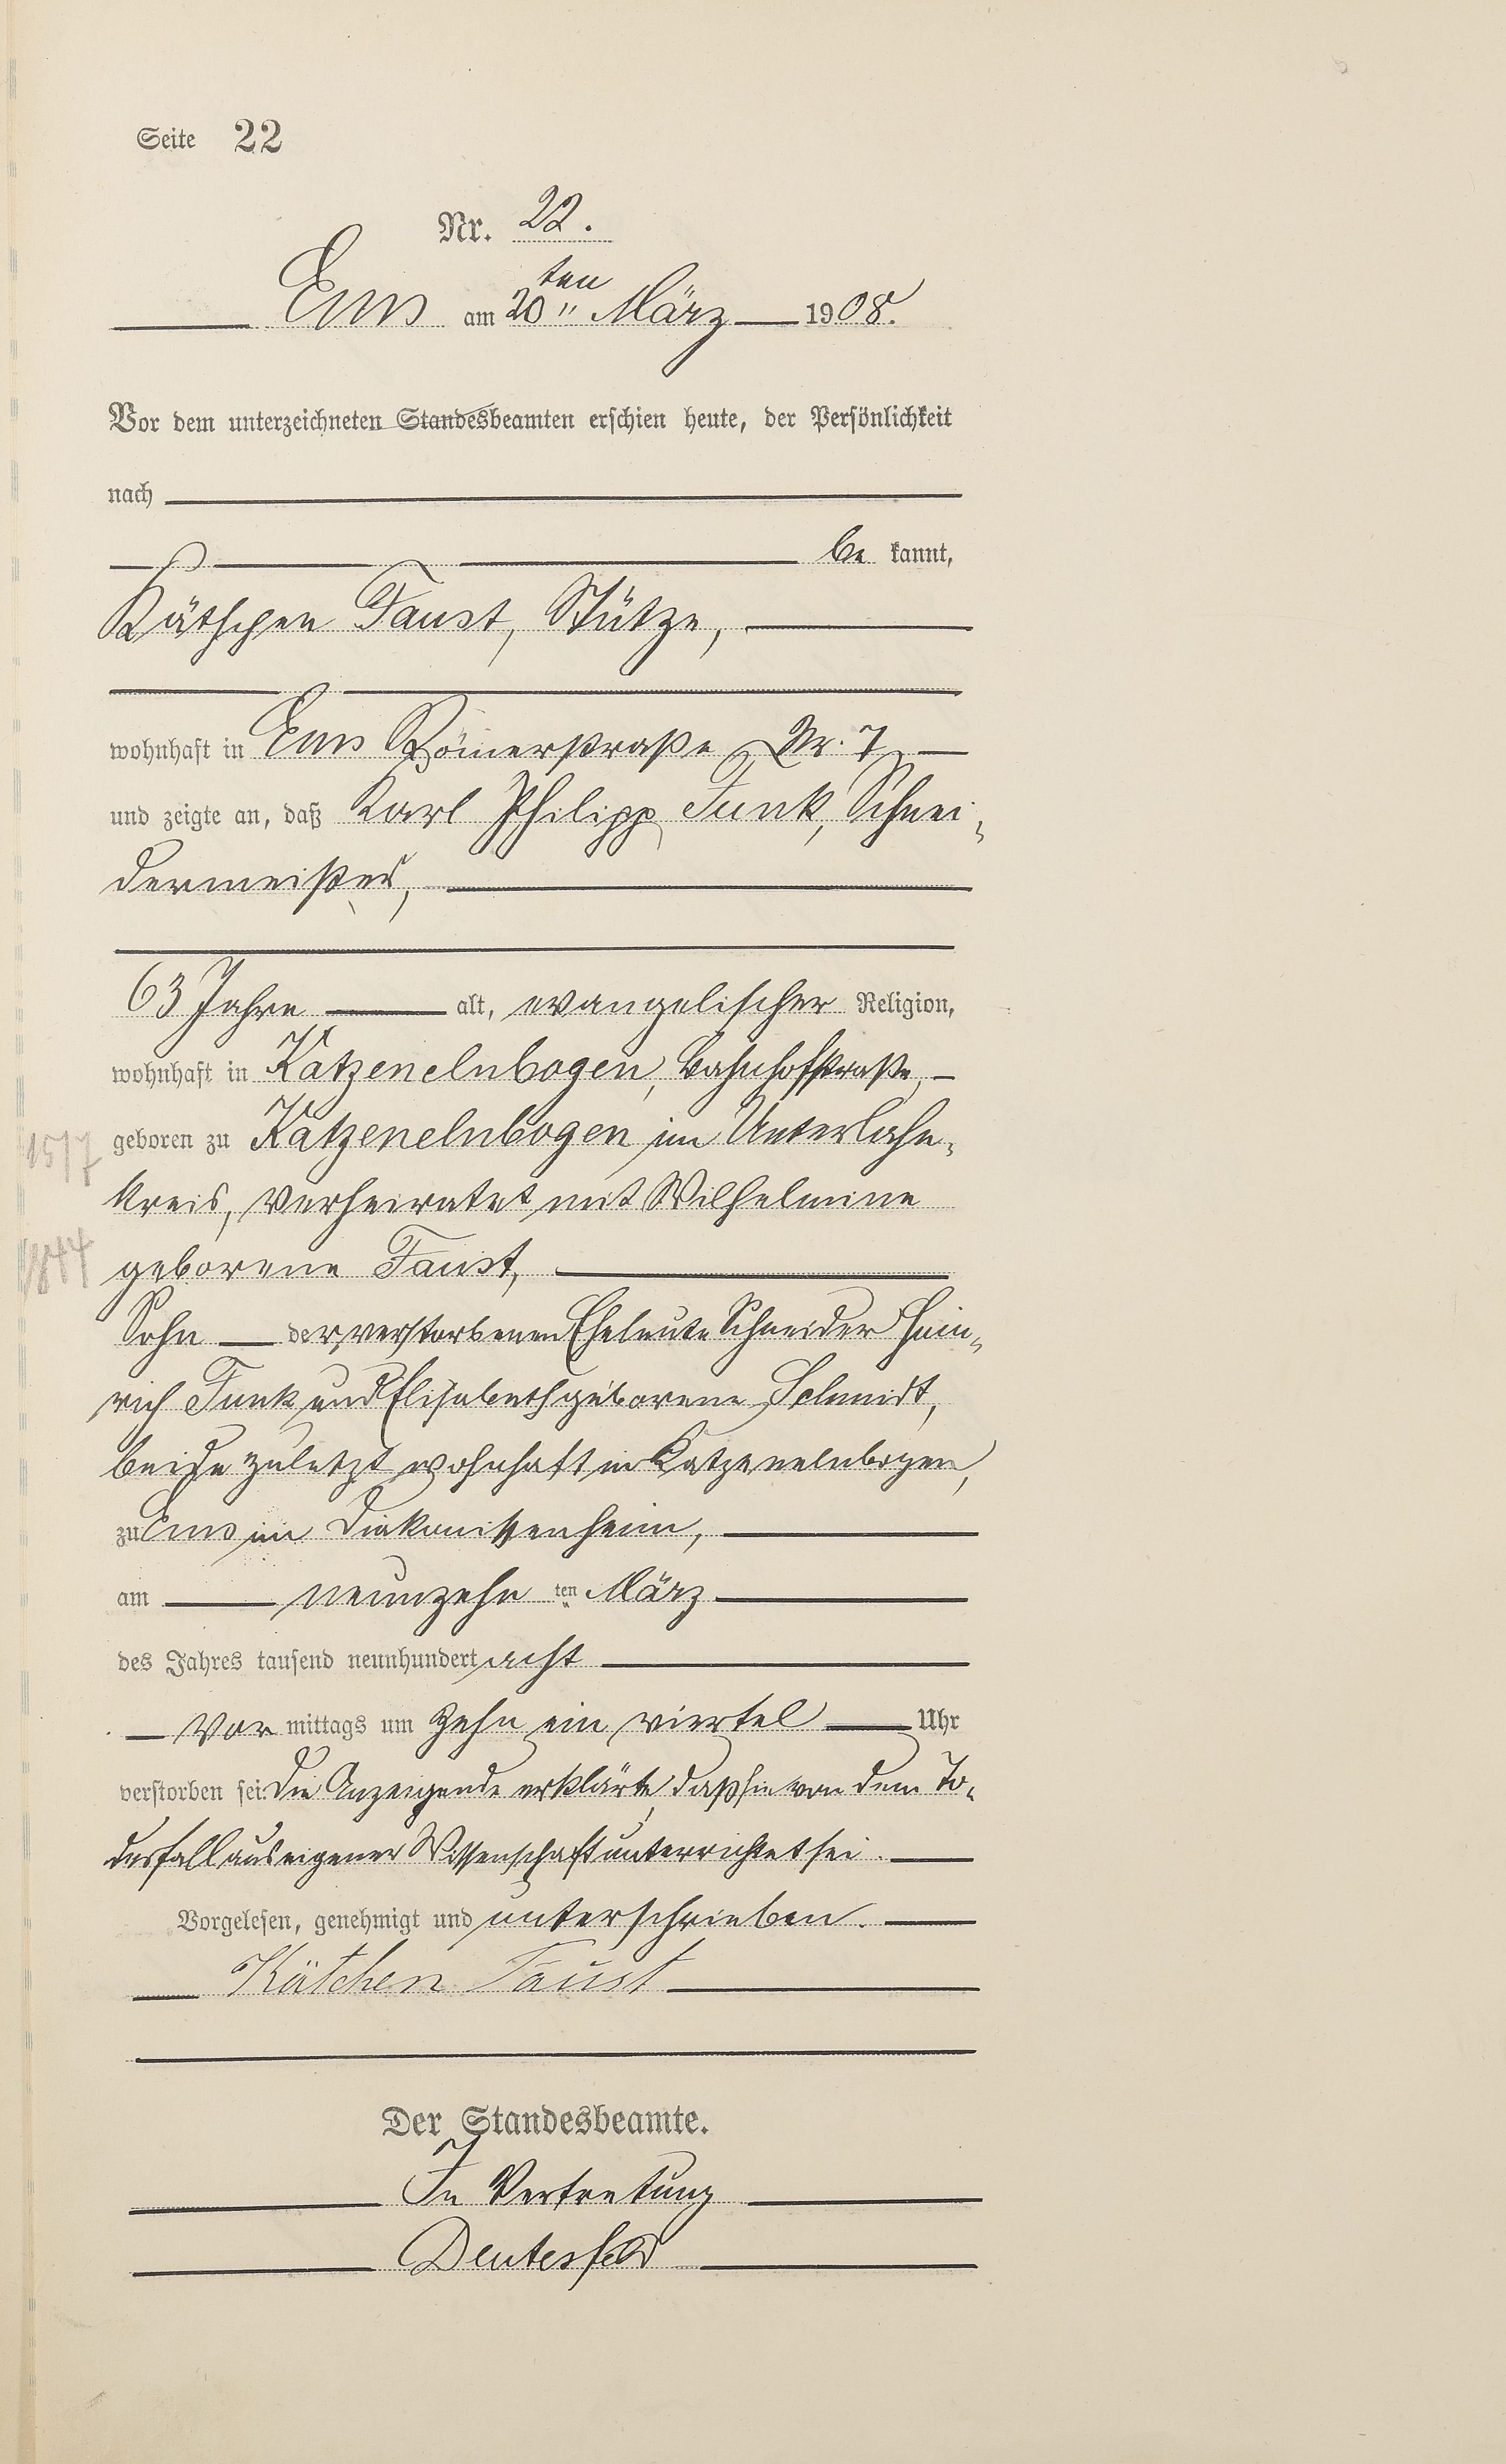 Seite 22
Nr. 22.
Ems am 20ten März 1908.
Vor dem unterzeichneten Standesbeamten erschien heute, der Persönlichkeit
nach
be kannt,
Käthchen Faust, Stütze,
wohnhaft in Ems Römerstraße Nr. 7,
und zeigte an, daß Karl Philipp Funk, Schnei-
dermeister,
63 Jahre alt, evangelischer Religion,
wohnhaft in Katzenelnbogen, Bahnhofstraße,
15/7 geboren zu Katzenelnbogen im Unterlahn-
kreis, verheiratet mit Wilhelmine
1844 geborene Faust,
Sohn der verstorbenen Eheleute Schneider Hein-
rich Funk und Elisabeth geborene Schmidt,
beide zuletzt wohnhaft in Katzenelnbogen,
zu Ems im Diakonissenheim,
am neunzehn ten März
des Jahres tausend neunhundert acht
Vor mittags um zehn ein viertel Uhr
verstorben sei. Die Anzeigende erklärte, daß sie von dem To-
desfall aus eigener Wissenschaft unterrichtet sei.
Vorgelesen, genehmigt und unterschrieben.
Kätchen Faust
Der Standesbeamte.
In Vertretung